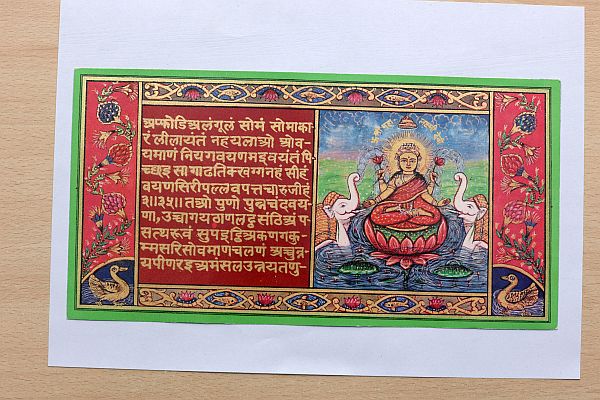 अप्फोडिअलंगूलं सोमं सोमाका
रं लीलायंतं नहयलाओ ओव-
यमाणं नियगवयणमइवयंतं पि-
च्छइ सा गाढतिक्खग्गनहं सीहं
वयणसिरीपल्लवपत्तचारुजीहं
३॥३५॥तओ पुणो पुन्नचंदवय-
णा, उच्चागयठाणलट्ठसंठिअं प-
सत्थरूवं सुपइट्ठिअकणगकु-
म्मसरिसोवमाणचलणं अच्चुन्न-
यपीणरइअमंसलउन्नयतणु-